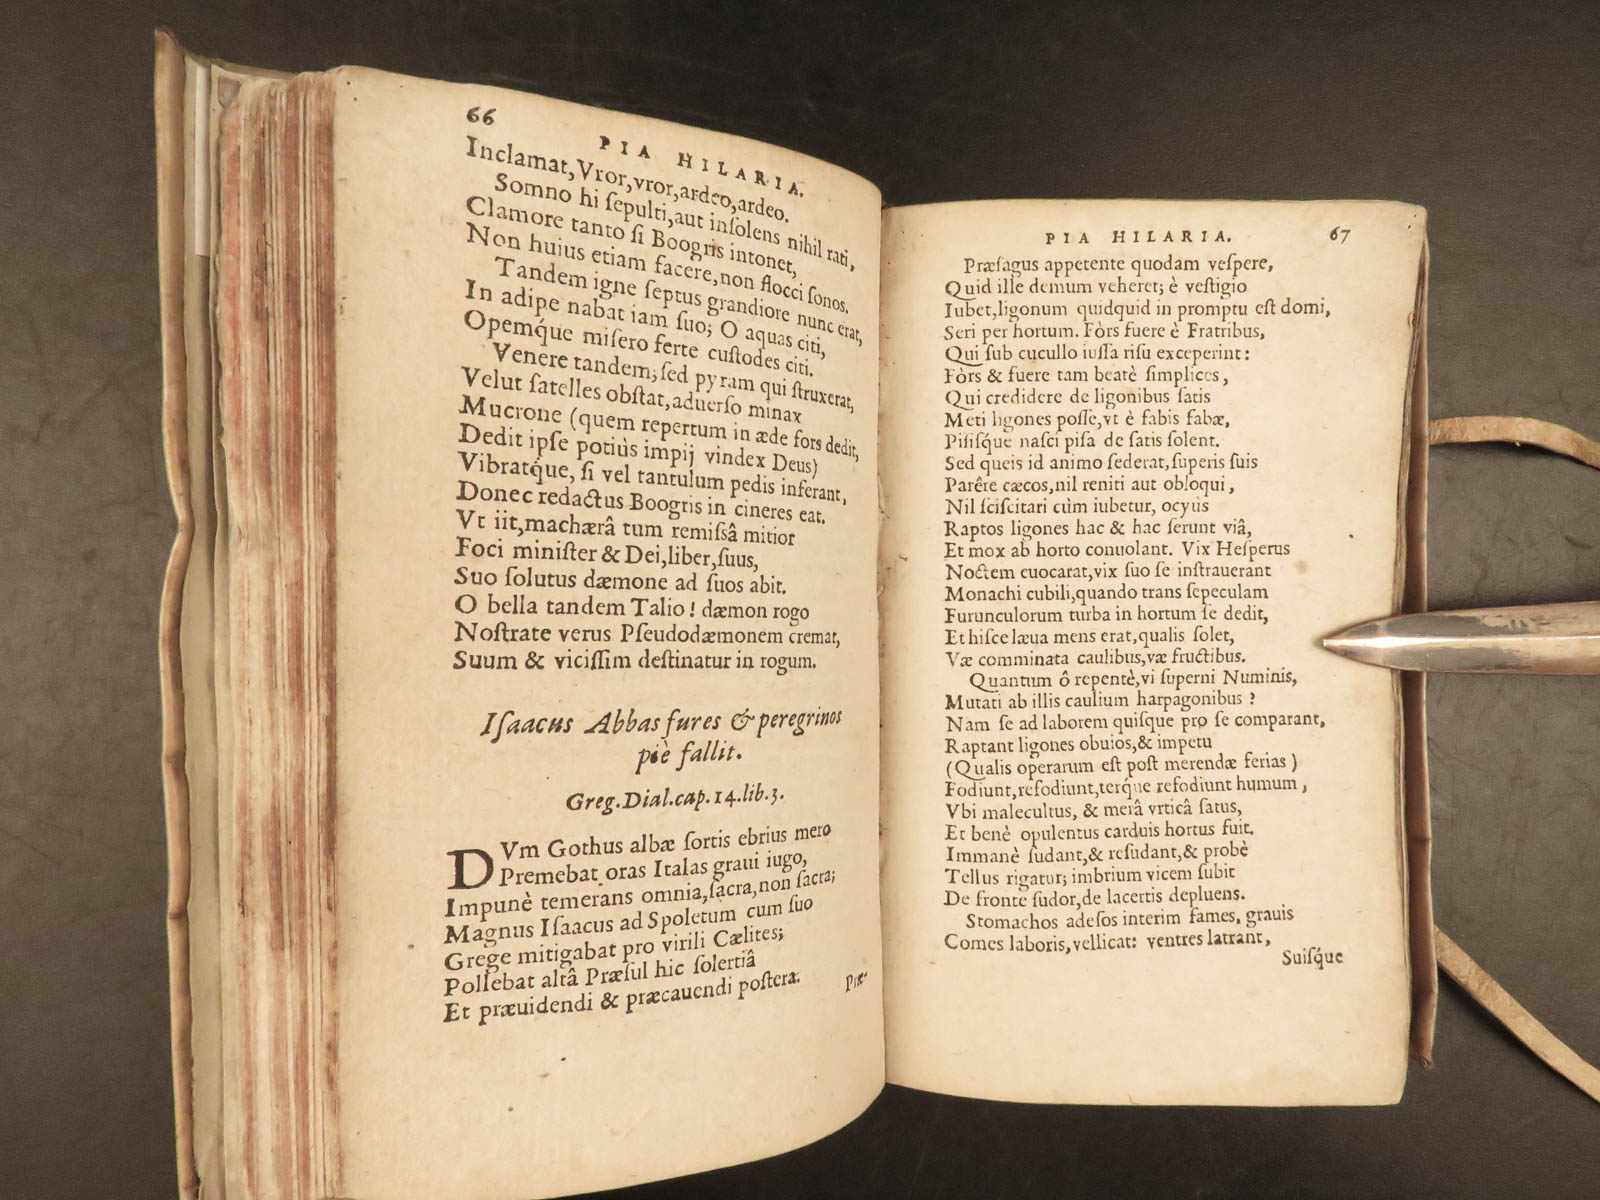 66
PIA HILARIA.
Inclamat,Vror,vror,ardeo,ardeo.
Somno hi ſepulti,aut inſolens nihil rati,
Clamore tanto ſi Boogris intonet,
Non huius etiam facere,non flocci ſonos.
Tandem igne ſeptus grandiore nunc erat,
In adipe nabat iam ſuo; O aquas citi,
Opemq́ue miſero ferte cuſtodes citi.
Venere tandem; ſed pyram qui ſtruxerat,
Velut ſatelles obſtat,aduerſo minax
Mucrone (quem repertum in æde fors dedit,
Dedit ipſe potiùs impij vindex Deus)
Vibratq́ue, ſi vel tantulum pedis inferant,
Donec redactus Boogris in cineres eat.
Vt iit,machærâ tum remiſsâ mitior
Foci miniſter & Dei,liber,ſuus,
Suo ſolutus dæmone ad ſuos abit.
O bella tandem Talio! dæmon rogo
Noſtrate verus Pſeudodæmonem cremat,
Suum & viciſſim deſtinatur in rogum.
Iſaacus Abbas fures & peregrinos
piè fallit.
Greg.Dial.cap.14.lib.3.
DVm Gothus albæ ſortis ebrius mero
Premebat oras Italas graui iugo,
Impunè temerans omnia,ſacra,non ſacra;
Magnus Iſaacus ad Spoletum cum ſuo
Grege mitigabat pro virili Cælites;
Pollebat altâ Præſul hic ſolertiâ
Et præuidendi & præcauendi poſtera.
Præ-
PIA HILARIA.
67
Præſagus appetente quodam veſpere,
Quid ille demum veheret; è veſtigio
Iubet,ligonum quidquid in promptu eſt domi,
Seri per hortum. Fòrs fuere è Fratribus,
Qui ſub cucullo iuſſa riſu exceperint:
Fòrs & fuere tam beatè ſimplices,
Qui credidere de ligonibus ſatis
Meti ligones poſſe,vt è fabis fabæ,
Piſiſq́ue naſci piſa de ſatis ſolent.
Sed queis id animo ſederat,ſuperis ſuis
Parêre cæcos,nil reniti aut obloqui,
Nil ſciſcitari cùm iubetur, ocyùs
Raptos ligones hac & hac ſerunt viâ,
Et mox ab horto conuolant. Vix Heſperus
Noctem euocarat,vix ſuo ſe inſtrauerant
Monachi cubili,quando trans ſepeculam
Furunculorum turba in hortum ſe dedit,
Et hiſce læua mens erat,qualis ſolet,
Væ comminata caulibus,væ fructibus.
Quantum ô repentè,vi ſuperni Numinis,
Mutati ab illis caulium harpagonibus?
Nam ſe ad laborem quiſque pro ſe comparant,
Raptant ligones obuios,& impetu
(Qualis operarum eſt poſt merendæ ferias)
Fodiunt,reſodiunt,terq́ue refodiunt humum,
Vbi malecultus, & merâ vrticâ ſatus,
Et benè opulentus carduis hortus fuit.
Immanè ſudant,& reſudant,& probè
Tellus rigatur; imbrium vicem ſubit
De fronte ſudor,de lacertis depluens.
Stomachos adeſos interim fames, grauis
Comes laboris,vellicat: ventres latrant,
Suiſq́ue